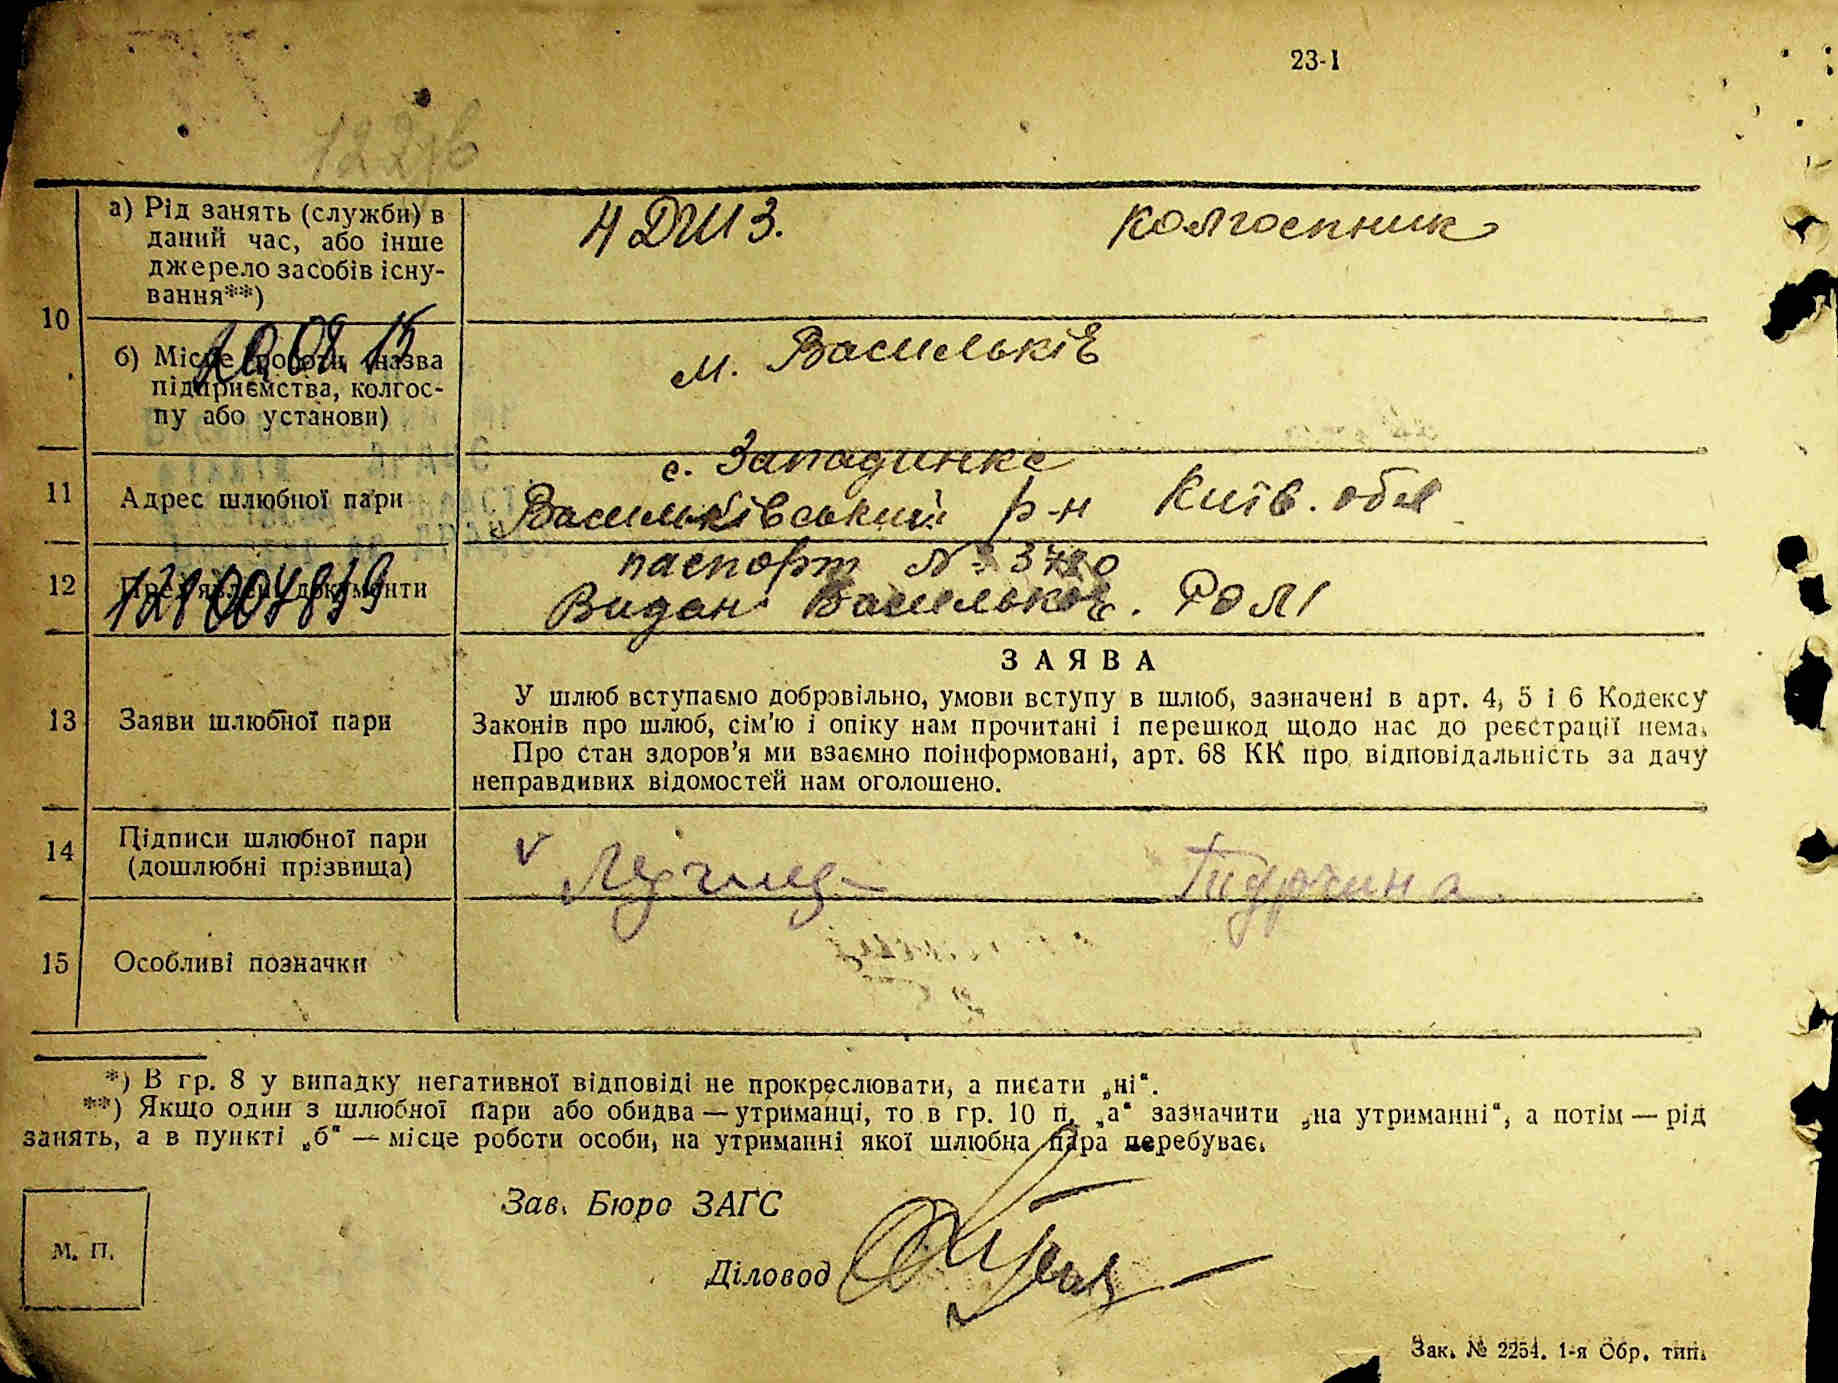 23-1
122зв
а) Рід занять (служби) в
даний час, або інше
джерело засобів існу-
вання**)
4 ДШЗ. колгоспник
10
б) Місце роботи (назва
підприємства, колгос-
пу або установи)
м. Васильків
11
Адрес шлюбної пари
с. Западинке
Васильківський р-н Київ. обл
12
Пред'явлені документи
паспорт №
Видан Васильков. РОМ
13
Заяви шлюбної пари
ЗАЯВА
У шлюб вступаємо добровільно, умови вступу в шлюб, зазначені в арт. 4, 5 і 6 Кодексу
Законів про шлюб, сім’ю і опіку нам прочитані і перешкод щодо нас до реєстрації нема.
Про стан здоров’я ми взаємно поінформовані, арт. 68 КК про відповідальність за дачу
неправдивих відомостей нам оголошено.
14
Підписи шлюбної пари
(дошлюбні прізвища)
v
15
Особливі позначки
*) В гр. 8 у випадку негативної відповіді не прокреслювати, а писати „ні“.
**) Якщо один з шлюбної пари або обидва — утриманці, то в гр. 10 п. „а“ зазначити „на утриманні“, а потім — рід
занять, а в пункті „б“ — місце роботи особи, на утриманні якої шлюбна пара перебуває.
Зав. Бюро ЗАГС
М. П.
Діловод
Зак. № 2254. 1-я Обр. тип.